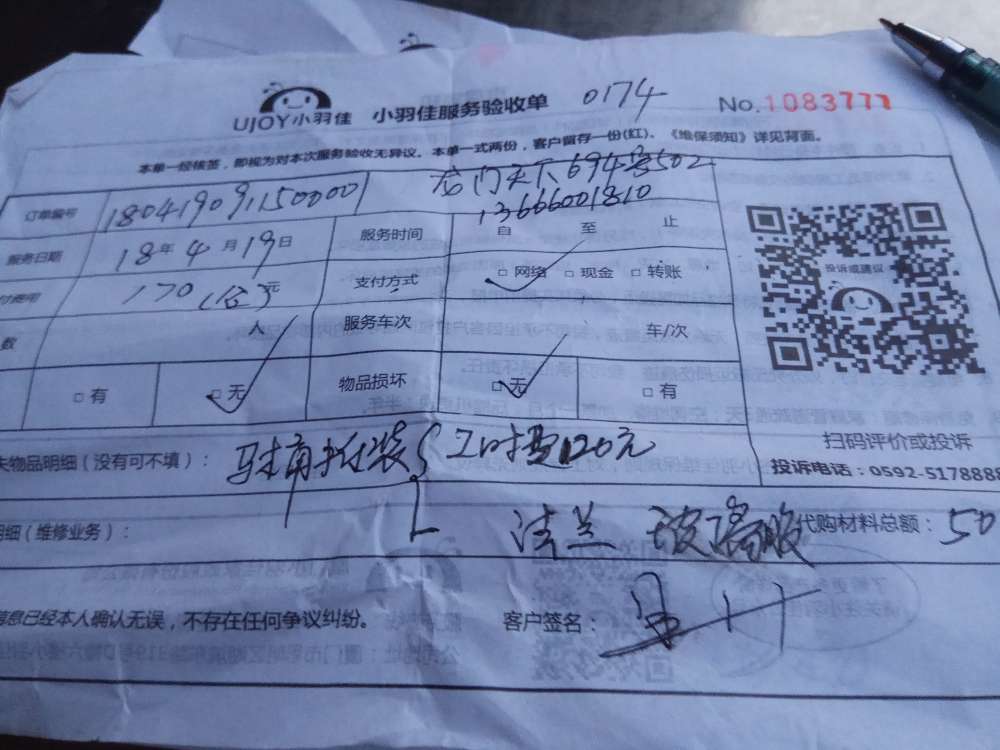 UJOY小羽佳 小羽佳服务验收单 0174 No.1083777
本单一经核签，即视为对本次服务验收无异议。本单一式两份，客户留存一份(红)。《维保须知》详见背面。
订单编号 180419091150001 龙门天下694号502
13666001810
服务日期 18年4月19日 服务时间 自 至 止
付费用 170 元 支付方式 □网络 □现金 □转账
数 人 服务车次 车/次
□有 □无 物品损坏 □无 □有
投诉或建议
扫码评价或投诉
投诉电话：0592-5178888
失物品明细（没有可不填）： 拆装 工时费120元
明细（维修业务）： 法兰 玻璃胶 代购材料总额：50
信息已经本人确认无误，不存在任何争议纠纷。 客户签名：